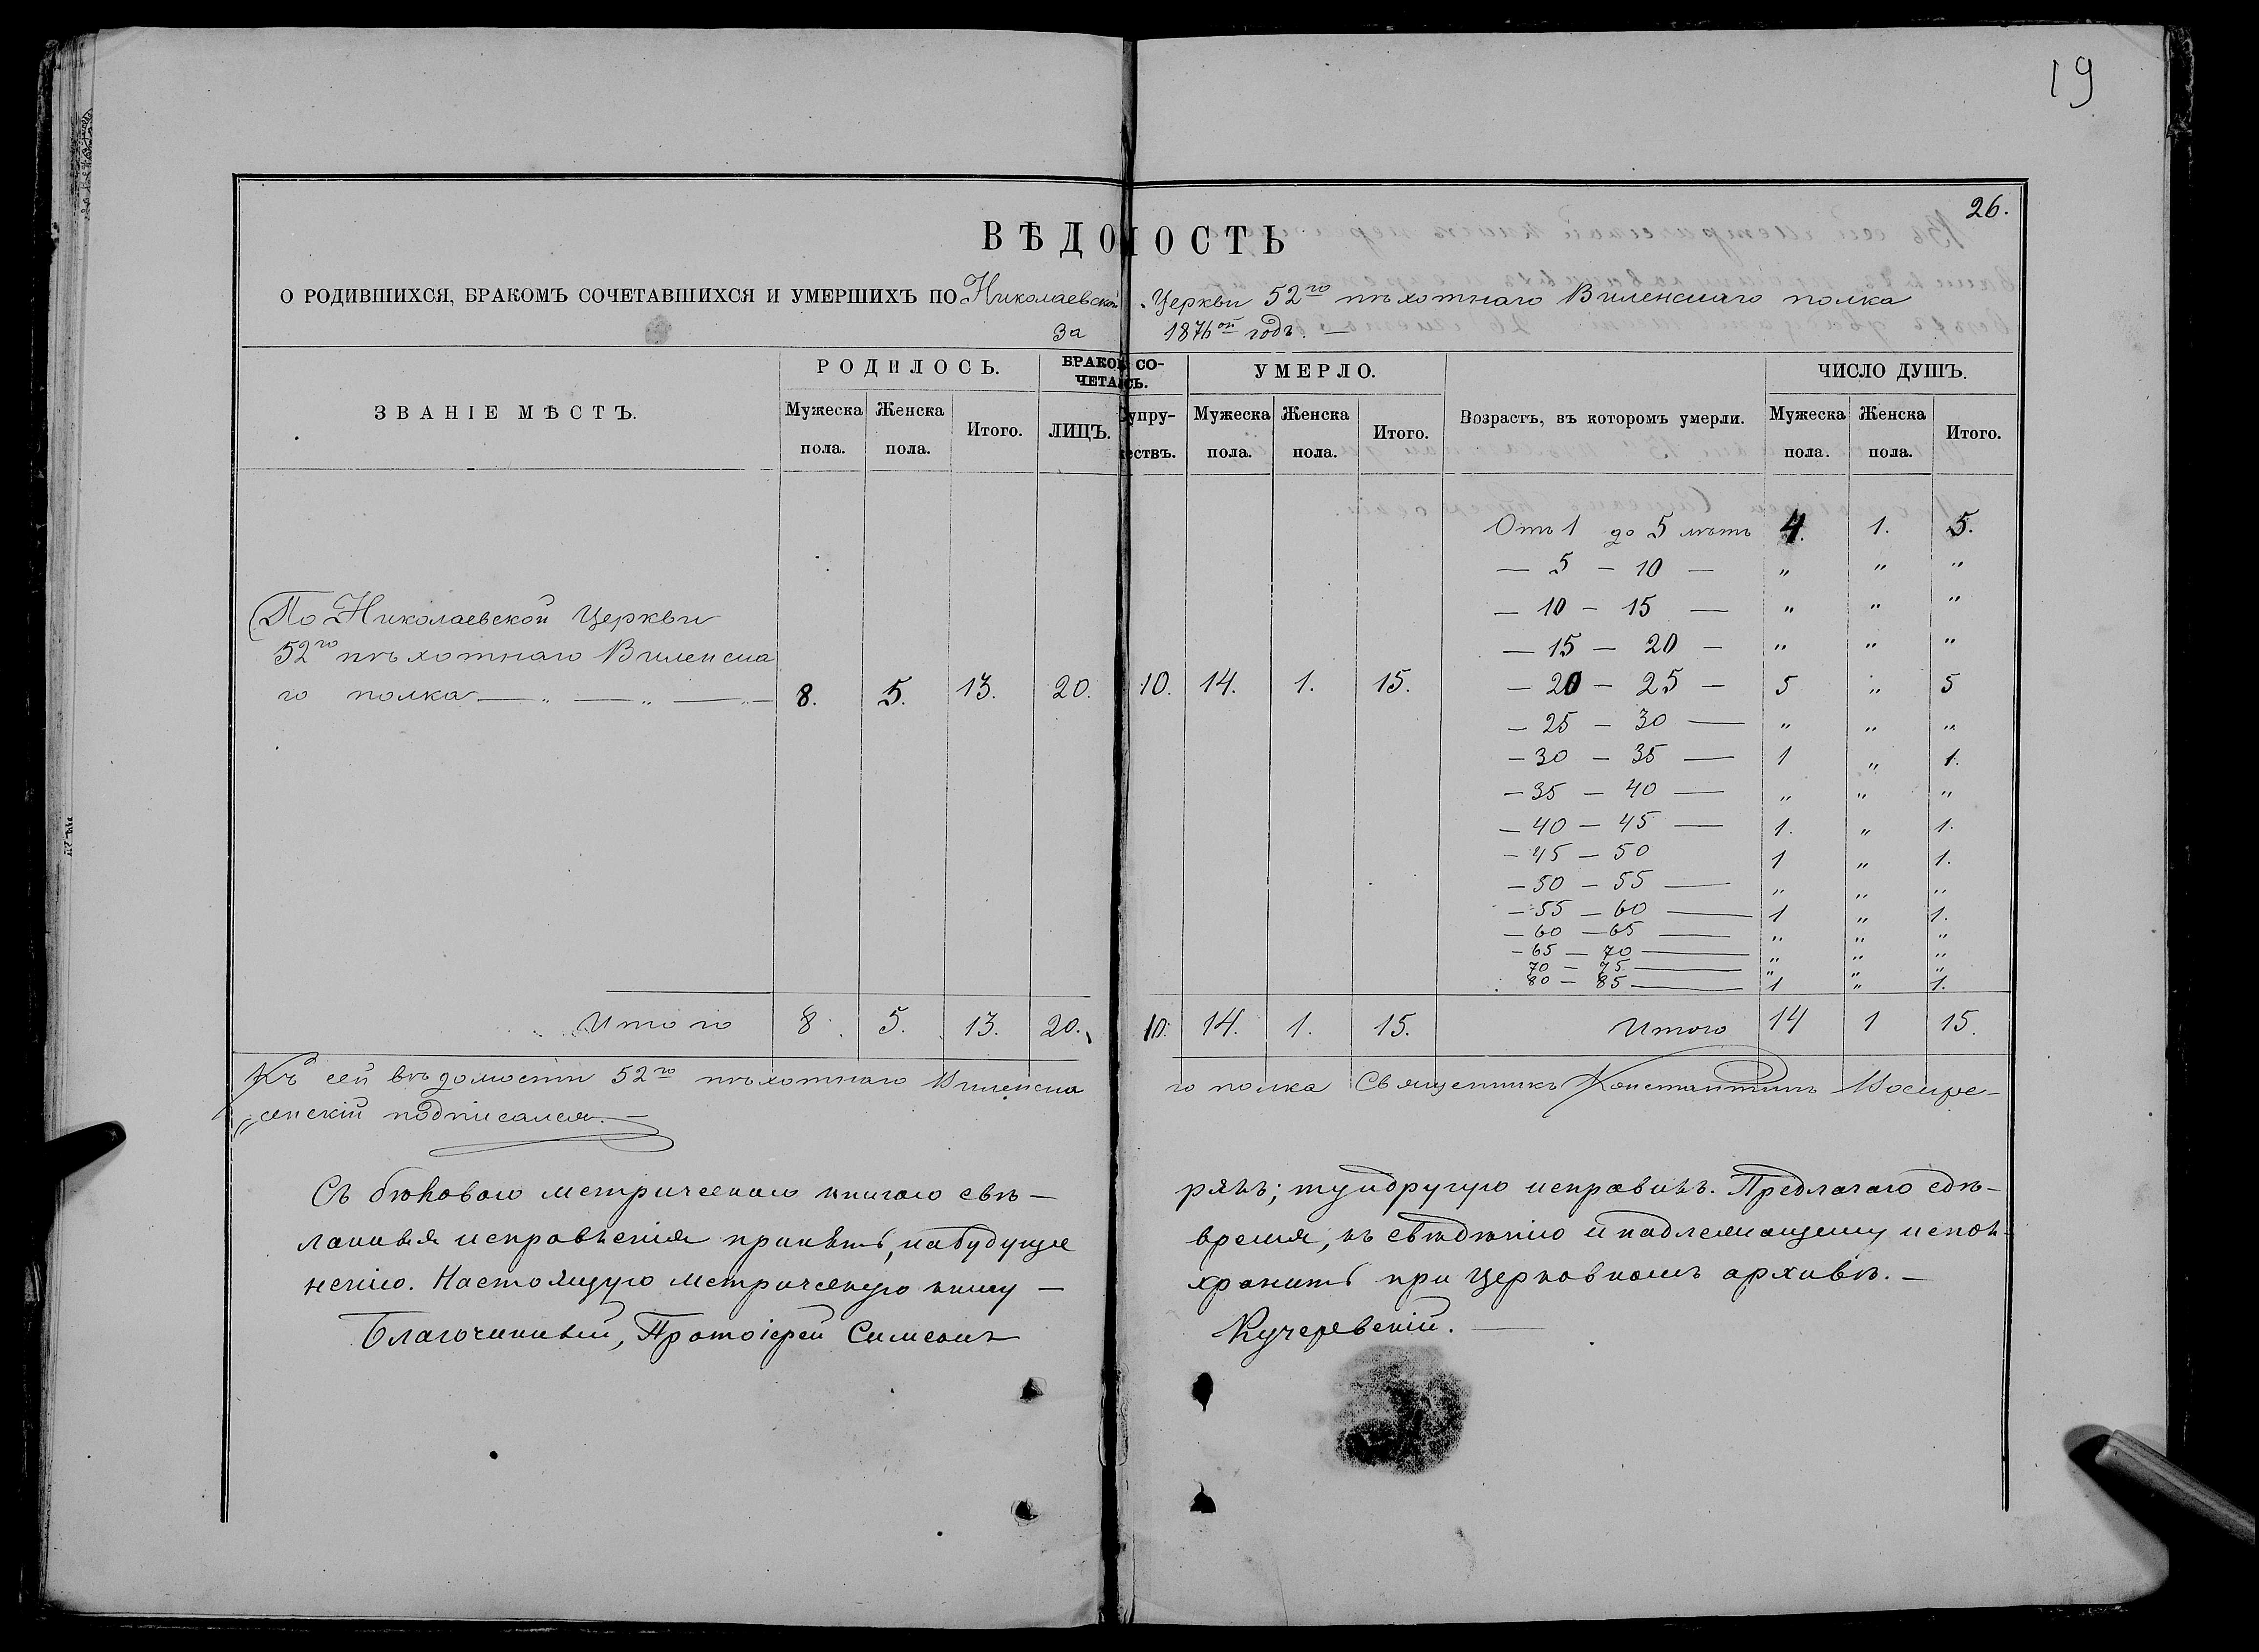 19
26.
ВѢДОМОСТЬ
О РОДИВШИХСЯ, БРАКОМЪ СОЧЕТАВШИХСЯ И УМЕРШИХЪ ПО Николаевской Церкви 52го пѣхотнаго Виленскаго полка
За 187 годъ. —
ЗВАНІЕ МѢСТЪ.
РОДИЛОСЬ.
Мужеска пола. Женска пола. Итого.
БРАКОМ СО-
ЧЕТАЛОСЬ.
ЛИЦЪ. Супру-
жествъ.
УМЕРЛО.
Мужеска пола. Женска пола. Итого.
Возрастъ, въ которомъ умерли.
ЧИСЛО ДУШЪ.
Мужеска пола. Женска пола. Итого.
По Николаевской Церкви
52го пѣхотнаго Виленска
го полка — „ — „ — „ — 8. 5. 13. 20. 10. 14. 1. 15.
Отъ 1 до 5 лѣтъ 4. 1. 5.
— 5 — 10 — „ „ „
— 10 — 15 — „ „ „
— 15 — 20 — „ „ „
— 20 — 25 — 5 „ 5
— 25 — 30 — „ „ „
— 30 — 35 — 1 „ 1.
— 35 — 40 — „ „ „
— 40 — 45 — 1. „ 1.
— 45 — 50 1 „ 1.
— 50 — 55 — „ „ „
— 55 — 60 — 1 „ 1.
— 60 — 65 — „ „ „
— 65 — 70 — „ „ „
70 — 75 — „ „ „
80 — 85 — 1 „ 1.
Итого 8. 5. 13. 20. 10. 14. 1. 15. Итого 14 1 15.
Къ сей вѣдомости 52го пѣхотнаго Виленска го полка Священникъ Константинъ Воскре-
сенскій подписался. —
Съ метрическою книгою свѣ — рялъ; ту и другую исправилъ. Предлагаю сдѣ-
ланныя исправленія принять, на будущее время, къ свѣдѣнію и надлежащему испол-
ненію. Настоящую метрическую книгу — хранить при Церковномъ архивѣ. —
Благочинный, Протоіерей Симеонъ Кучеревскій. —